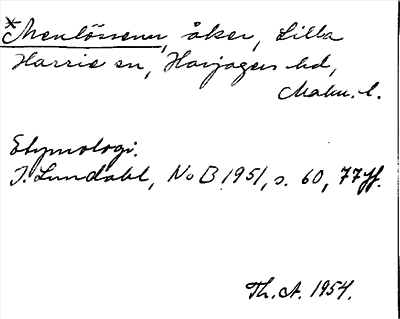 åker, Lilla
Harrie sn, Harjagers hd,
Malm. l.
Etymologi.
I. Lundahl, NoB 1951, s. 60, 77ff.
Th. A. 1954.